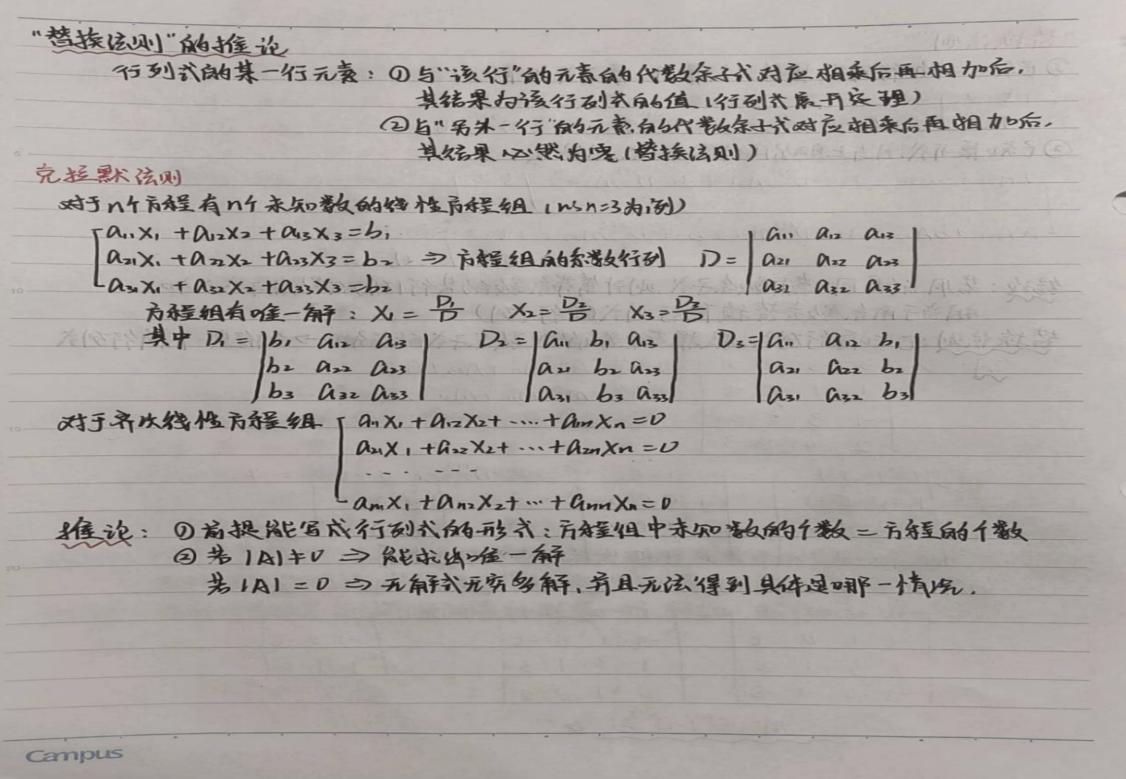 "替换法则"的推论
行列式的某一行元素：①与"该行"的元素的代数余子式对应相乘后再相加后，
其结果为该行列式的值（行列式展开定理）
②与"另外一行"的元素的代数余子式对应相乘后再相加后，
其结果必然为零（替换法则）
克拉默法则
对于n个方程有n个未知数的线性方程组（以n=3为例）
a₁₁x₁+a₁₂x₂+a₁₃x₃=b₁
a₂₁x₁+a₂₂x₂+a₂₃x₃=b₂ ⇒ 方程组的系数行列 D= | a₁₁ a₁₂ a₁₃ | a₂₁ a₂₂ a₂₃ | a₃₁ a₃₂ a₃₃ |
a₃₁x₁+a₃₂x₂+a₃₃x₃=b₂
方程组有唯一解：x₁=D₁/D x₂=D₂/D x₃=D₃/D
其中 D₁= | b₁ a₁₂ a₁₃ | D₂= | a₁₁ b₁ a₁₃ | D₃= | a₁₁ a₁₂ b₁ |
| b₂ a₂₂ a₂₃ | | a₂₁ b₂ a₂₃ | | a₂₁ a₂₂ b₂ |
| b₃ a₃₂ a₃₃ | | a₃₁ b₃ a₃₃ | | a₃₁ a₃₂ b₃ |
对于齐次线性方程组 a₁₁x₁+a₁₂x₂+····+a₁ₙxₙ=0
a₂₁x₁+a₂₂x₂+···+a₂ₙxₙ=0
······
aₙ₁x₁+aₙ₂x₂+···+aₙₙxₙ=0
推论：①前提能写成行列式的形式：方程组中未知数的个数=方程的个数
②若|A|≠0 ⇒ 能求出唯一解
若|A|=0 ⇒ 无解或无穷多解，并且无法得到具体是哪一情况.
Campus